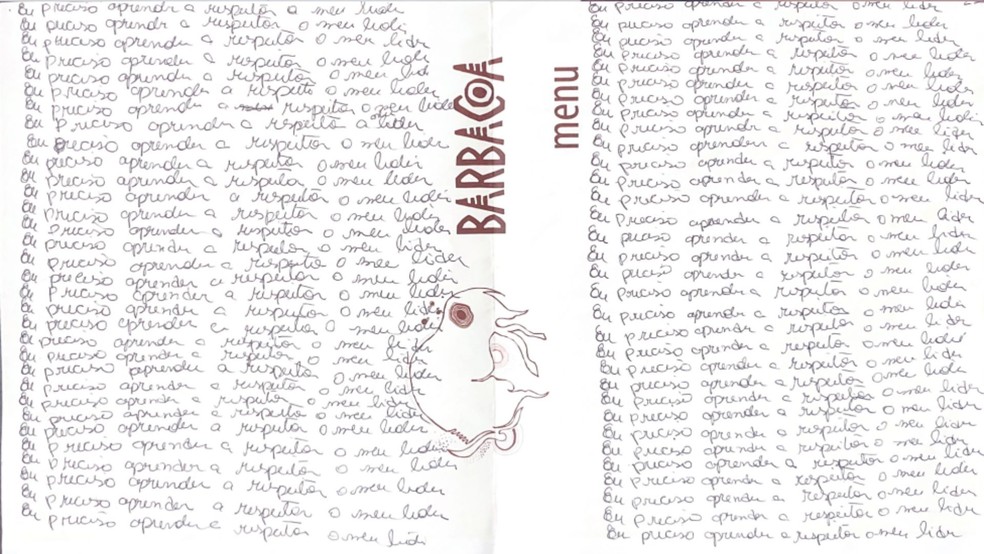 Eu preciso aprender a respeitar o meu lider
Eu preciso aprender a respeitar o meu lider
Eu preciso aprender a respeitar o meu lider
Eu preciso aprender a respeitar o meu lider
Eu preciso aprender a respeito o meu lider
Eu preciso aprender a respeitar o meu lider
Eu preciso aprender a respeitar o meu lider
Eu preciso aprender a respeitar o meu lider
Eu preciso aprender a respeitar o meu lider
Eu preciso aprender a respeitar o meu lider
Eu preciso aprender a respeitar o meu lider
Eu preciso aprender a respeitar o meu lider
Eu preciso aprender a respeitar o meu lider
Eu preciso aprender a respeitar o meu lider
Eu preciso aprender a respeitar o meu lider
Eu preciso aprender a respeitar o meu lider
Eu preciso aprender a respeitar o meu lider
Eu preciso aprender a respeitar o meu lider
Eu preciso aprender a respeitar o meu lider
Eu preciso aprender a respeitar o meu lider
Eu preciso aprender a respeitar o meu lider
Eu preciso aprender a respeitar o meu lider
Eu preciso aprender a respeitar o meu lider
Eu preciso aprender a respeitar o meu lider
Eu preciso aprender a respeitar o meu lider
Eu preciso aprender a respeitar o meu lider
Eu preciso aprender a respeitar o meu lider
Eu preciso aprender a respeitar o meu lider
Eu preciso aprender a respeitar o meu lider
Eu preciso aprender a respeitar o meu lider
Eu preciso aprender a respeitar o meu lider
BARBACOA
menu
Eu preciso aprender a respeitar o meu lider
Eu preciso aprender a respeitar o meu lider
Eu preciso aprender a respeitar o meu lider
Eu preciso aprender a respeitar o meu lider
Eu preciso aprender a respeitar o meu lider
Eu preciso aprender a respeitar o meu lider
Eu preciso aprender a respeitar o meu lider
Eu preciso aprender a respeitar o meu lider
Eu preciso aprender a respeitar o meu lider
Eu preciso aprender a respeitar o meu lider
Eu preciso aprender a respeitar o meu lider
Eu preciso aprender a respeitar o meu lider
Eu preciso aprender a respeitar o meu lider
Eu preciso aprender a respeitar o meu lider
Eu preciso aprender a respeitar o meu lider
Eu preciso aprender a respeitar o meu lider
Eu preciso aprender a respeitar o meu lider
Eu preciso aprender a respeitar o meu lider
Eu preciso aprender a respeitar o meu lider
Eu preciso aprender a respeitar o meu lider
Eu preciso aprender a respeitar o meu lider
Eu preciso aprender a respeitar o meu lider
Eu preciso aprender a respeitar o meu lider
Eu preciso aprender a respeitar o meu lider
Eu preciso aprender a respeitar o meu lider
Eu preciso aprender a respeitar o meu lider
Eu preciso aprender a respeitar o meu lider
Eu preciso aprender a respeitar o meu lider
Eu preciso aprender a respeitar o meu lider
Eu preciso aprender a respeitar o meu lider
Eu preciso aprender a respeitar o meu lider
Eu preciso aprender a respeitar o meu lider